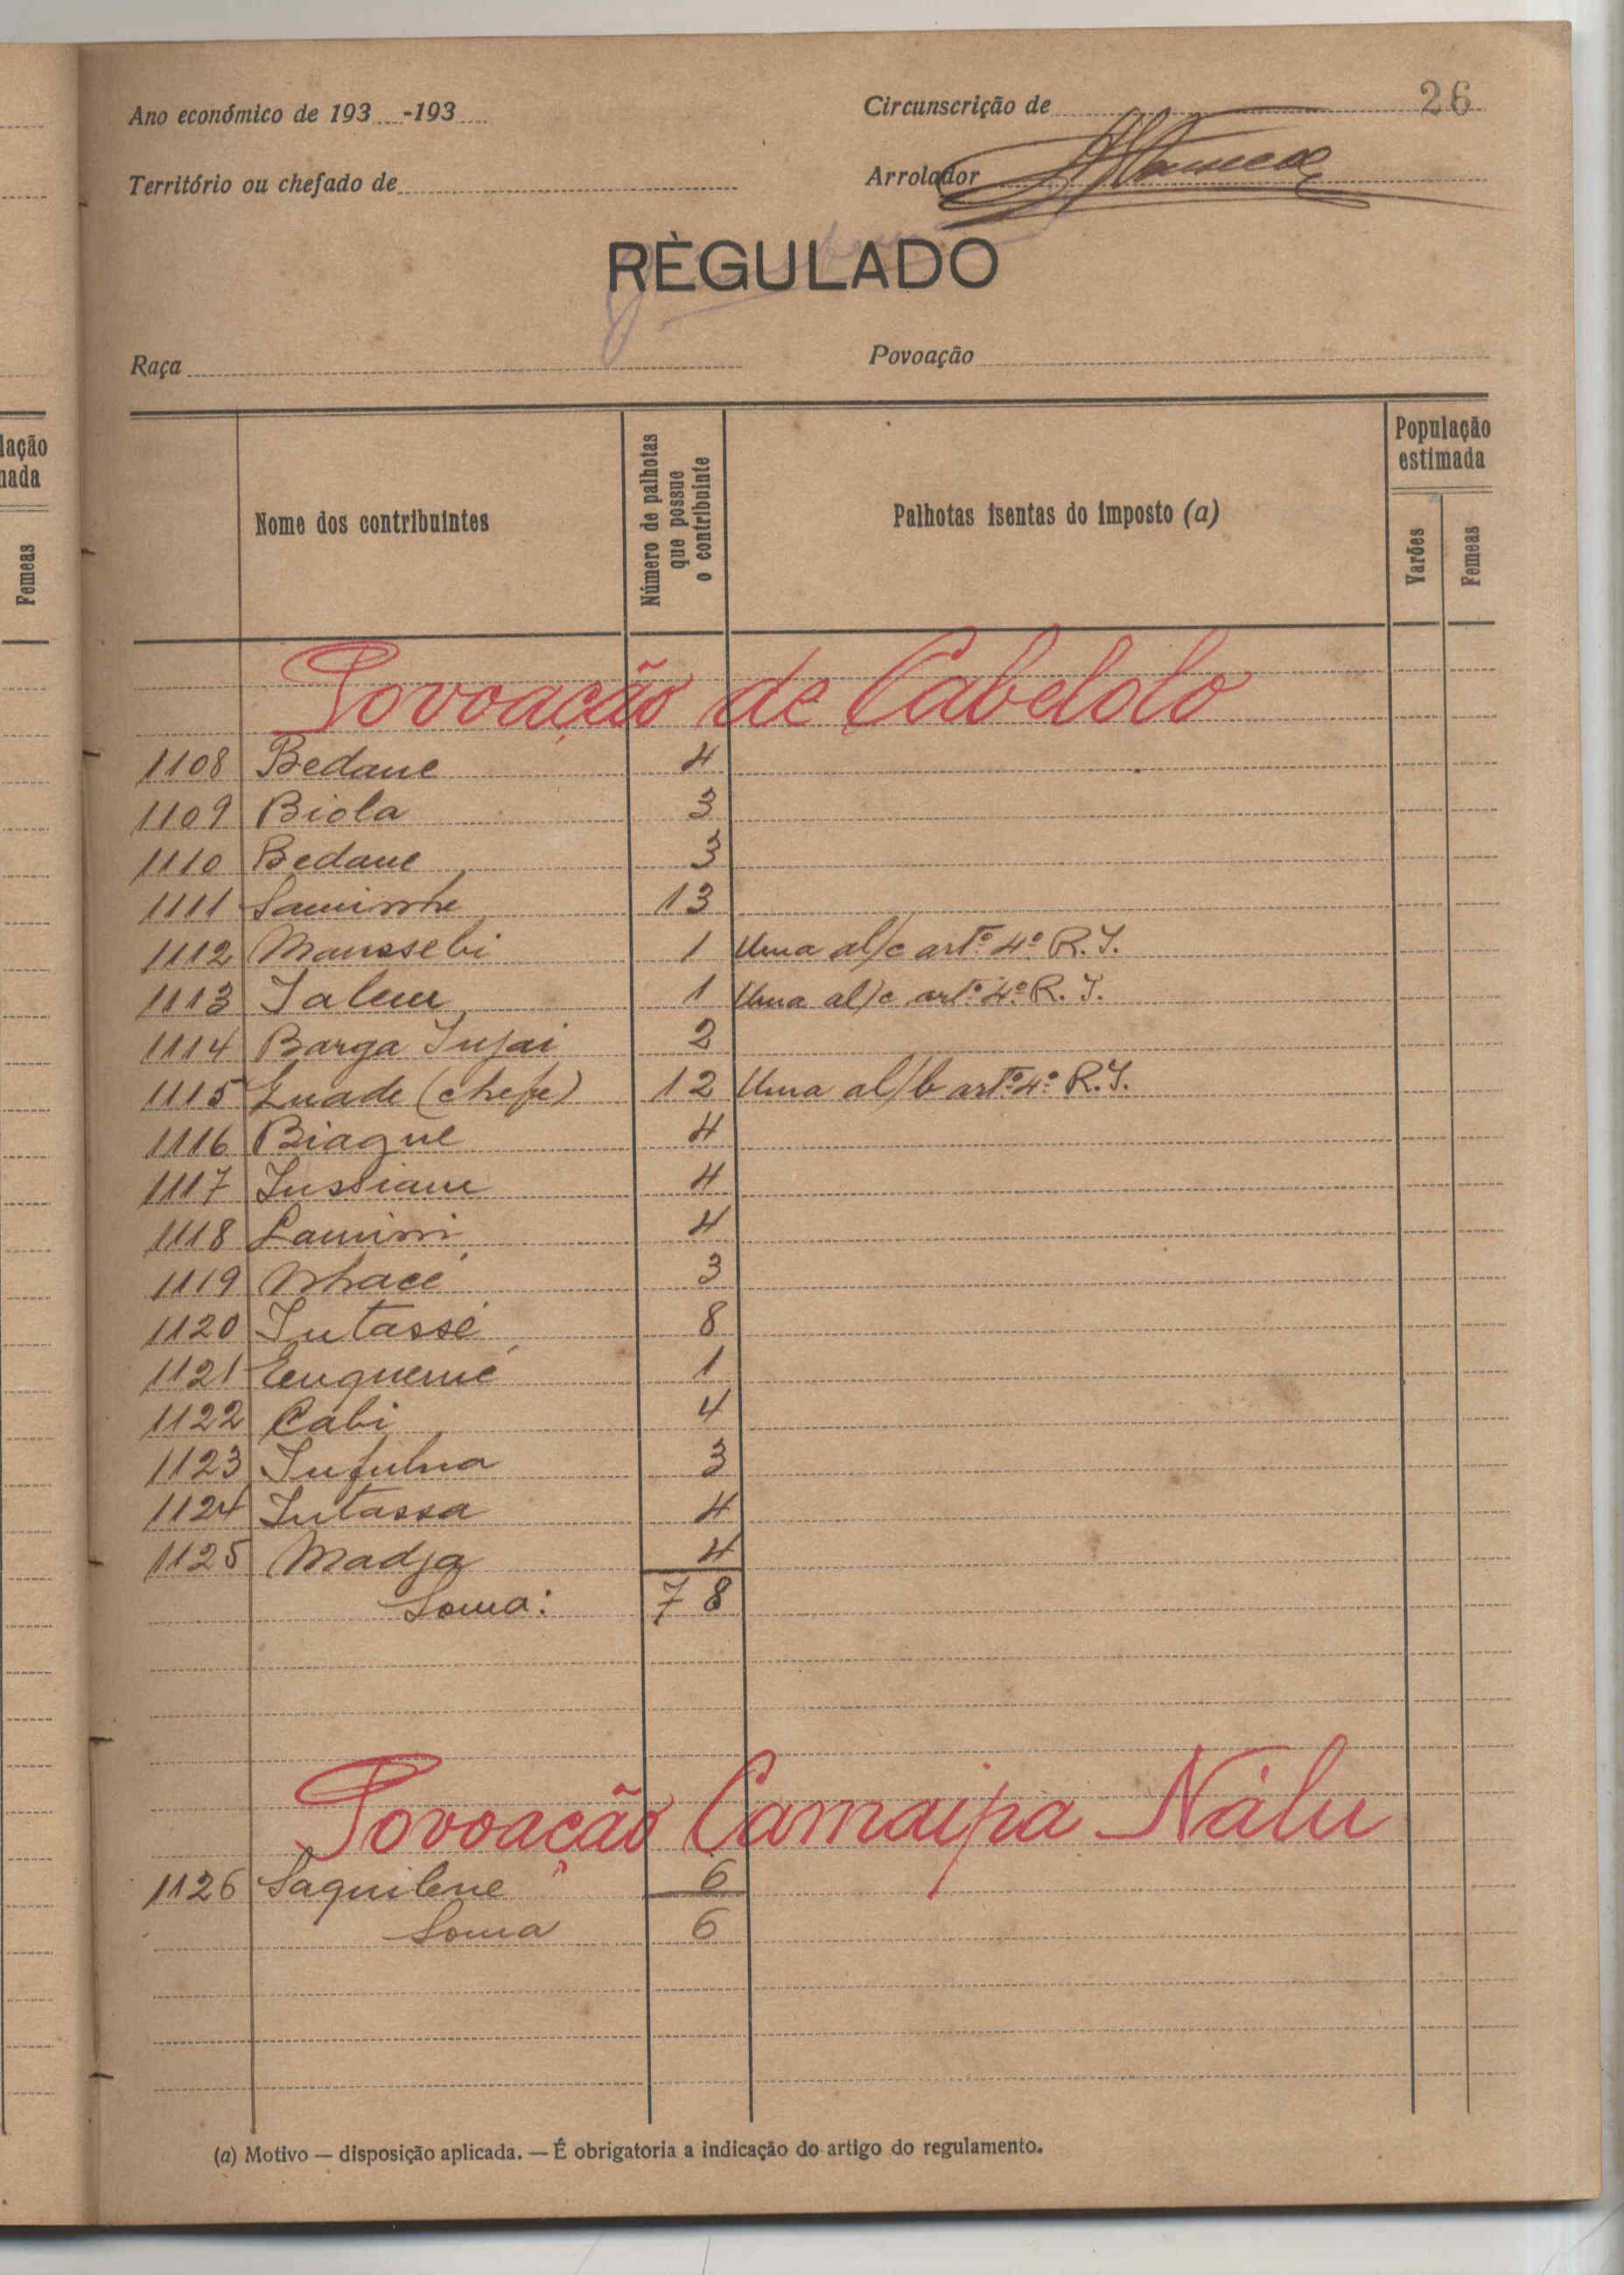 26
Ano económico de 193 -193
Circunscrição de
Território ou chefado de
Arrolador
RÈGULADO
Raça
Povoação
Nome dos contribuintes
Número de palhotas que possue o contribuinte
Palhotas isentas do imposto (a)
População estimada
Varões
Femeas
lação
nada
Femeas
Povoação de Cabelolo
1108 Bedane 4
1109 Biola 3
1110 Bedane 3
1111 13
1112 Manssebi 1 Uma al/c artº 4º R. I.
1113 1 Uma al/c artº 4º R. I.
1114 Barga 2
1115 (chefe) 12 Uma al/b artº 4º R. I.
1116 Biague 4
1117 4
1118 Lamini 4
1119 Nhacé 3
1120 Intassé 8
1121 1
1122 Cabi 4
1123 3
1124 Intassa 4
1125 Madja 4
Soma: 78
Povoação Camaipa Nálu
1126 Saquilene 6
Soma 6
(a) Motivo — disposição aplicada. — É obrigatoria a indicação do artigo do regulamento.